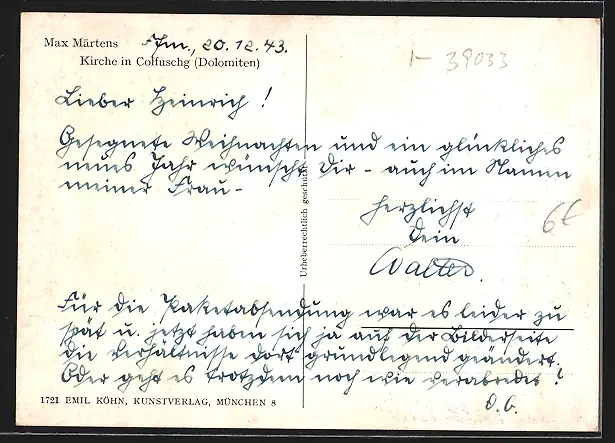 Max Märtens
Ffm., 20.12.43.
Kirche in Colfuschg (Dolomiten)
1-39033
Lieber Heinrich!
Gesegnete Weihnachten und ein glückliches
neues Jahr wünscht Dir - auch im Namen
meiner Frau -
herzlichst
Dein
Walter.
6€
Urheberrechtlich geschützt
Für die Paketabsendung war es leider zu
spät u. jetzt haben sich ja auf der Bilderseite
die Verhältnisse dort grundlegend geändert.
Oder geht es trotzdem noch wie verabredet?
D. O.
1721 EMIL KÖHN, KUNSTVERLAG, MÜNCHEN 8